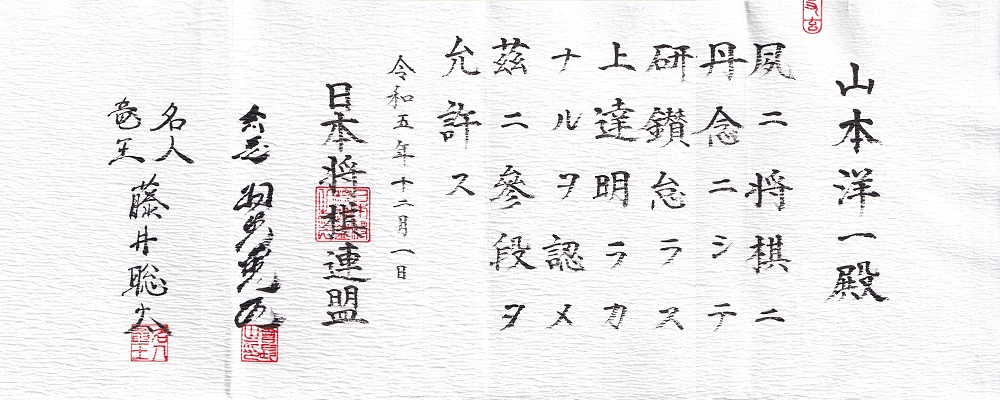 山本洋一殿
夙ニ将棋ニ
丹念ニシテ
研鑚怠ラス
上達明ラカ
ナルヲ認メ
茲ニ參段ヲ
允許ス
令和五年十二月一日
日本将棋連盟
会長 羽生善治
名人
竜王
藤井聡太